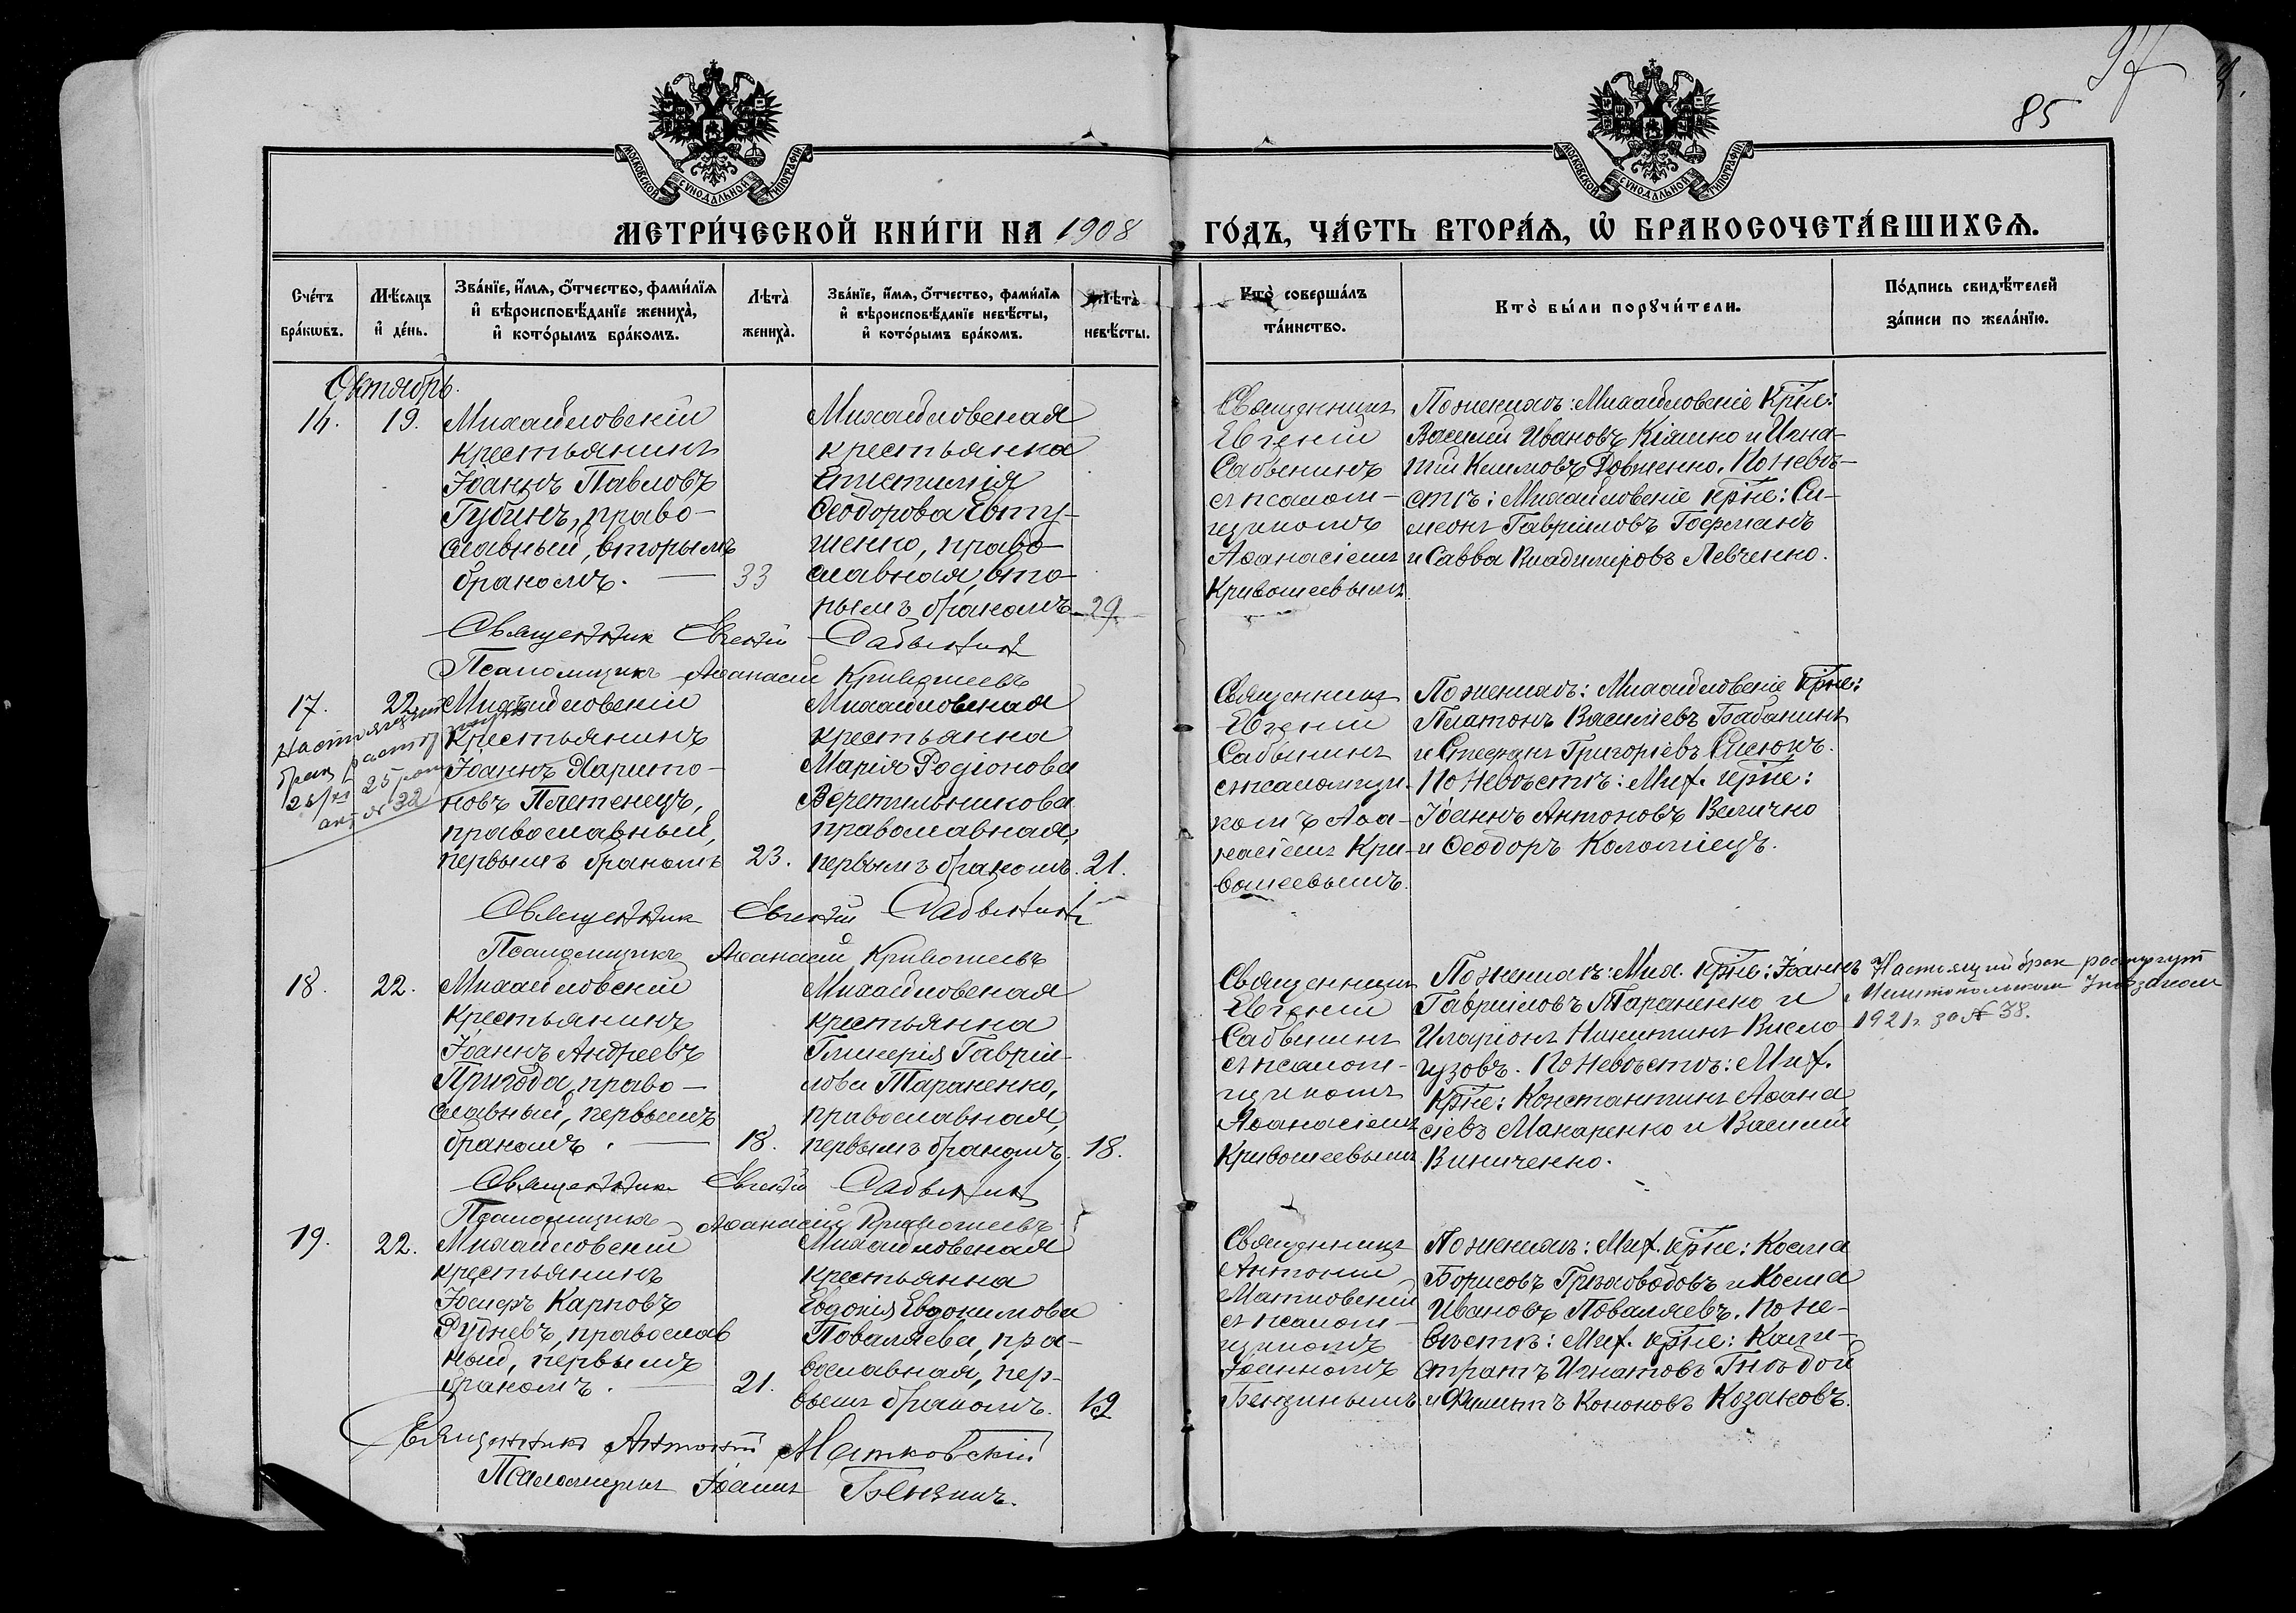 97
85
МОСКОВСКОЙ СѴНОДАЛЬНОЙ ТИПОГРАФІИ
МОСКОВСКОЙ СѴНОДАЛЬНОЙ ТИПОГРАФІИ
МЕТРИ́ЧЕСКОЙ КНИ́ГИ НА 1908 ГО́ДЪ, ЧА́СТЬ ВТОРА́Ѧ, Ѽ БРАКОСОЧЕТА́ВШИХСѦ.
Сче́тъ бра́кѡвъ.
Мѣ́сяцъ и҆ де́нь.
Зва́нїе, и҆́мѧ, ѻ҆́тчество, фами́лїѧ
и҆ вѣроисповѣ́данїе жениха̀,
и҆ кото́рымъ бра́комъ.
Лѣта̀ жениха̀.
Зва́нїе, и҆́мѧ, ѻ҆́тчество, фами́лїѧ
и҆ вѣроисповѣ́данїе невѣ́сты,
и҆ кото́рымъ бра́комъ.
Лѣта̀ невѣ́сты.
Кто̀ соверша́лъ
та́инство.
Кто̀ бы́ли порꙋчи́тели.
По́дпись свидѣ́телей
за́писи по жела́нїю.
Октябрь.
19.
Михайловскій
крестьянинъ
Іоаннъ Павловъ
Губинъ, право-
славный, вторымъ
бракомъ. — 33
Михайловская
крестьянка
Епистимія
Ѳеодорова Евту-
шенко, право-
славная, вто-
рымъ бракомъ 29.
Священникъ
Евгеній
Савенинъ
съ псалом-
щикомъ
Аѳанасіемъ
Кривошеевымъ.
По женихѣ: Михайловскіе кр̅не:
Василій Ивановъ Кіяшко и Игна-
тій Климовъ Довженко. По невѣ-
стѣ: Михайловскіе кр̅не: Си-
меонъ Гавріиловъ Гофманъ
и Савва Владиміровъ Левченко.
Священник Евгеній
Псаломщикъ Аѳанасій Кривошеевъ
17.
22.
Настоящій
брак расторгнутъ
25
акт № 32
Михайловскій
Крестьянинъ
Іоаннъ Харито-
новъ Плетенецъ,
православный,
первымъ бракомъ 23.
Михайловская
крестьянка
Марія Родіонова
Веретильникова
православная,
первымъ бракомъ. 21.
Священникъ
Евгеній
съ псаломщи-
комъ Аѳа-
насіемъ Кри-
вошеевымъ.
По женихѣ: Михайловскіе кр̅не:
Платонъ Василіевъ Бабанинъ
и Стефанъ Григоріевъ Сисюкъ.
По невѣстѣ: Мих. кр̅не:
Іоаннъ Антоновъ Величко
и Ѳеодоръ Коломіецъ.
Священник Евгеній
Псаломщикъ Аѳанасій Кривошеевъ
18.
22.
Михайловскій
Крестьянинъ
Іоаннъ Андреевъ
Пригода, право-
славный, первымъ
бракомъ. — 18.
Михайловская
крестьянка
Гликерія Гавріи-
лова Тараненко,
православная,
первымъ бракомъ. 18.
Священникъ
Евгеній
съ псалом-
щикомъ
Аѳанасіемъ
Кривошеевымъ
По женихѣ: Мих. кр̅не: Іоаннъ
Гавріиловъ Тараненко и
Иларіонъ Никитинъ Висло
гузовъ. По невѣстѣ: Мих.
кр̅не: Константинъ Аѳана
сіевъ Макаренко и Василій
Виниченко.
Настоящий брак расторгнут
Мелитопольским
1921 г. за № 38.
Священник Евгеній
Псаломщикъ Аѳанасій Кривошеевъ
19.
22.
Михайловскій
крестьянинъ
Іосифъ Карповъ
Рудневъ, православ
ный, первымъ
бракомъ. — 21.
Михайловская
крестьянка
Евдокія Евдокимова
Поваляева, пра-
вославная, пер-
вымъ бракомъ. 19
Священникъ
Антоній
Матковскій
съ псалом-
щикомъ
Іоанномъ
Бензинымъ
По женихѣ: Мих. кр̅не: Косма
Борисовъ Грязоводовъ и Косма
Ивановъ Поваляевъ. По не-
вѣстѣ: Мих. кр̅не: Кали-
стратъ Игнатовъ Гнѣдой
и Филиппъ Кононовъ Козаковъ.
Священникъ Антоній Матковскій
Псаломщикъ Іоаннъ Бензинъ.